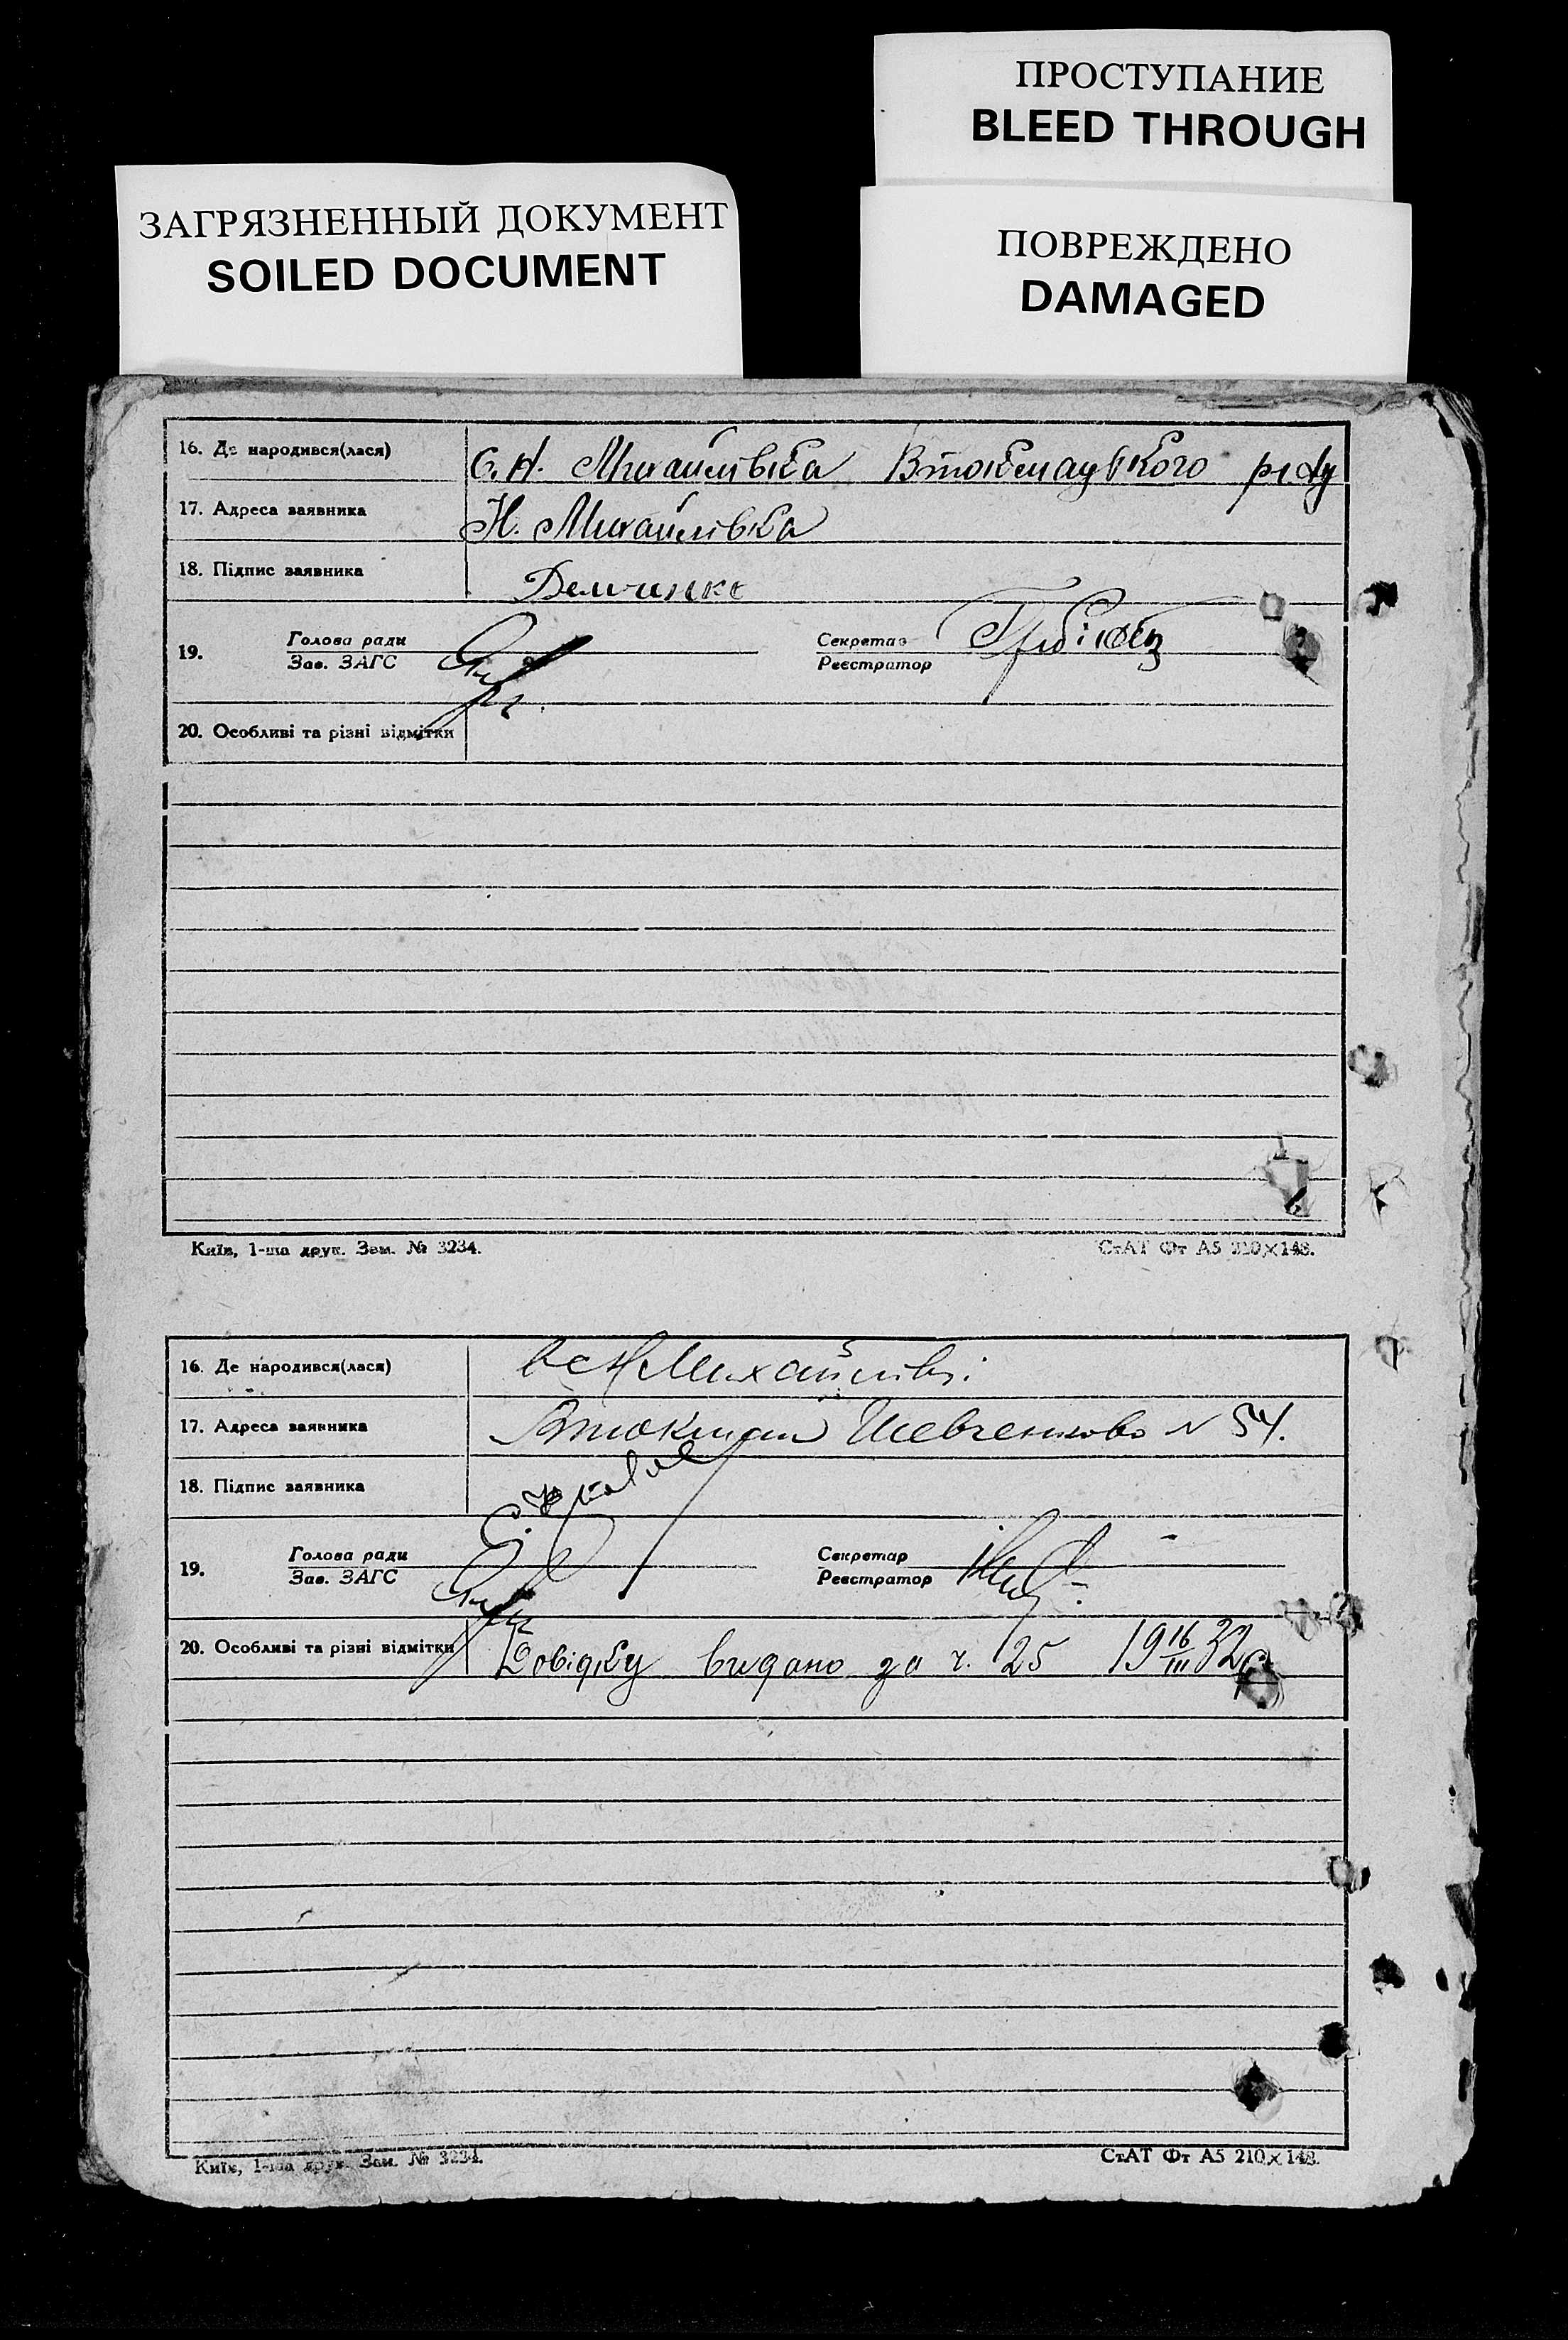 ПРОСТУПАНИЕ
BLEED THROUGH
ЗАГРЯЗНЕННЫЙ ДОКУМЕНТ
SOILED DOCUMENT
ПОВРЕЖДЕНО
DAMAGED
16. Де народився(лася) С. Н. Михайлівка Втокмацького р-ну
17. Адреса заявника Н. Михайлівка
18. Підпис заявника Демченко
19. Голова ради Секретар
Зав. ЗАГС Реєстратор
20. Особливі та різні відмітки
Київ, 1-ша друк. Зам. № 3234. СтАТ Фт А5 210×148.
16. Де народився(лася) в с Н Михайлівці
17. Адреса заявника Втокмак Шевченково № 54.
18. Підпис заявника
19. Голова ради Секретар
Зав. ЗАГС Реєстратор
20. Особливі та різні відмітки Довідку видано за ч. 25 19 16/III 32 р
Київ, 1-ша друк. Зам. № 3234. СтАТ Фт А5 210×148.